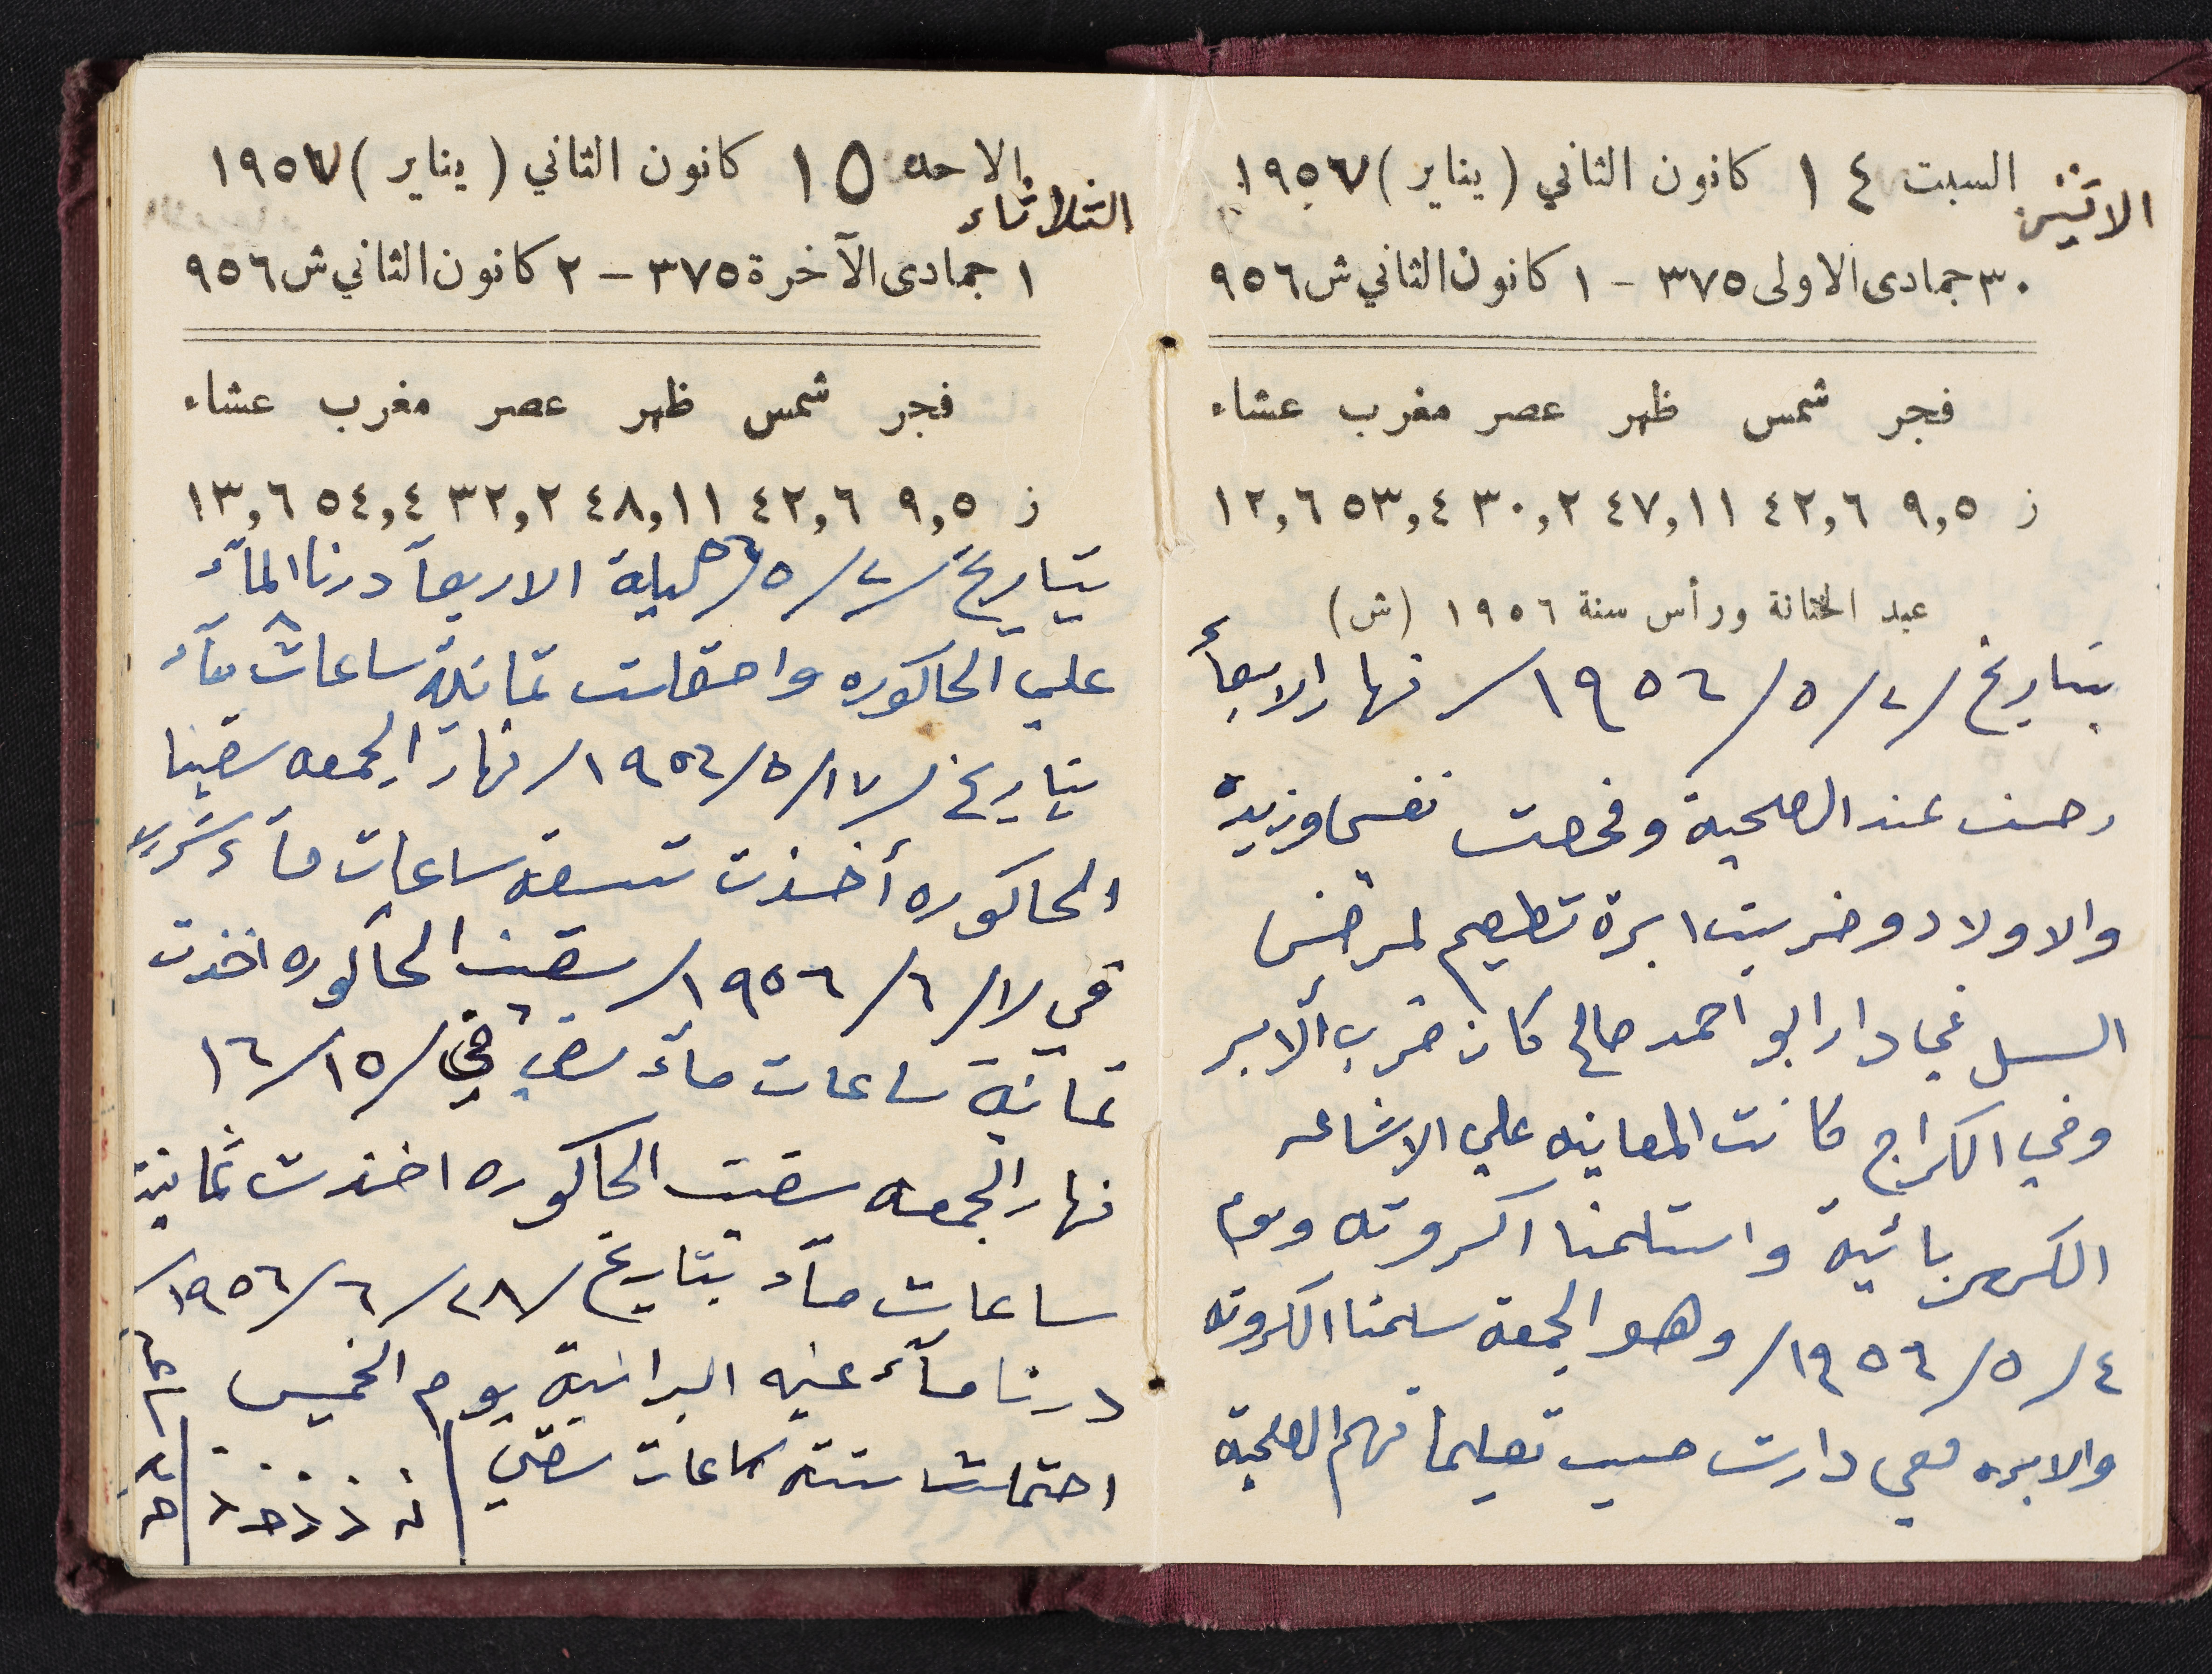 السبت ١٤ كانون الثاني (يناير) ١٩٥٧
الاثنين
٣٠ جمادى الاولى ٣٧٥ – ١ كانون الثاني ش ٩٥٦
فجر شمس ظهر عصر مغرب عشاء
ز ٩,٥ ٤٢,٦ ٤٧,١١ ٣٠,٢ ٥٣,٤ ١٢,٦
عيد الختانة ورأس سنة ١٩٥٦ (ش)
بتاريخ /٢/٥/١٩٥٦/ نهار الاربعاً
رحت عند الصحية وفحصت نفسي وزيده
والاولاد وضربت ابرة تطعيم لمرض
السل في دار ابو احمد صالح كان ضرب الابر
وفي الكراج كانت المعاينه علي الاشاعه
الكهربائية واستلمنا اكروته ويوم
٤/٥/١٩٥٦/ وهو الجمعة سلمنا الكروته
والابره معي دارت حسب تعليماتهم الصحية
الاحد ١٥ كانون الثاني (يناير) ١٩٥٧
الثلاثاء
١ جمادى الآخرة ٣٧٥ – ٢ كانون الثاني ش ٩٥٦
فجر شمس ظهر عصر مغرب عشاء
ز ٩,٥ ٤٢,٦ ٤٨,١١ ٣٢,٢ ٥٤,٤ ١٣,٦
بتاريخ /٢/٥/٥٦ ليلة الاربعاً درنا المآء
علي الحاكوره واحتملت ثمانية ساعات مآء ٨
بتاريخ /١٧/٥/١٩٥٦/ نهار الجمعه سقينا
الحاكوره أخذت تسعه ساعات مآء
في /١/٦/١٩٥٦/ سقيت الحاكوره اخذت
ثمانية ساعات مآء سقي في /١٥/٦/١
نهار الجمعه سقيت الحاكوره اخذت ثمانية
ساعات مآء بتاريخ /٢٨/٦/١٩٥٦/
درنا مآء عنيه البرانية يوم الخميس
احتملت سته ساعات سقي